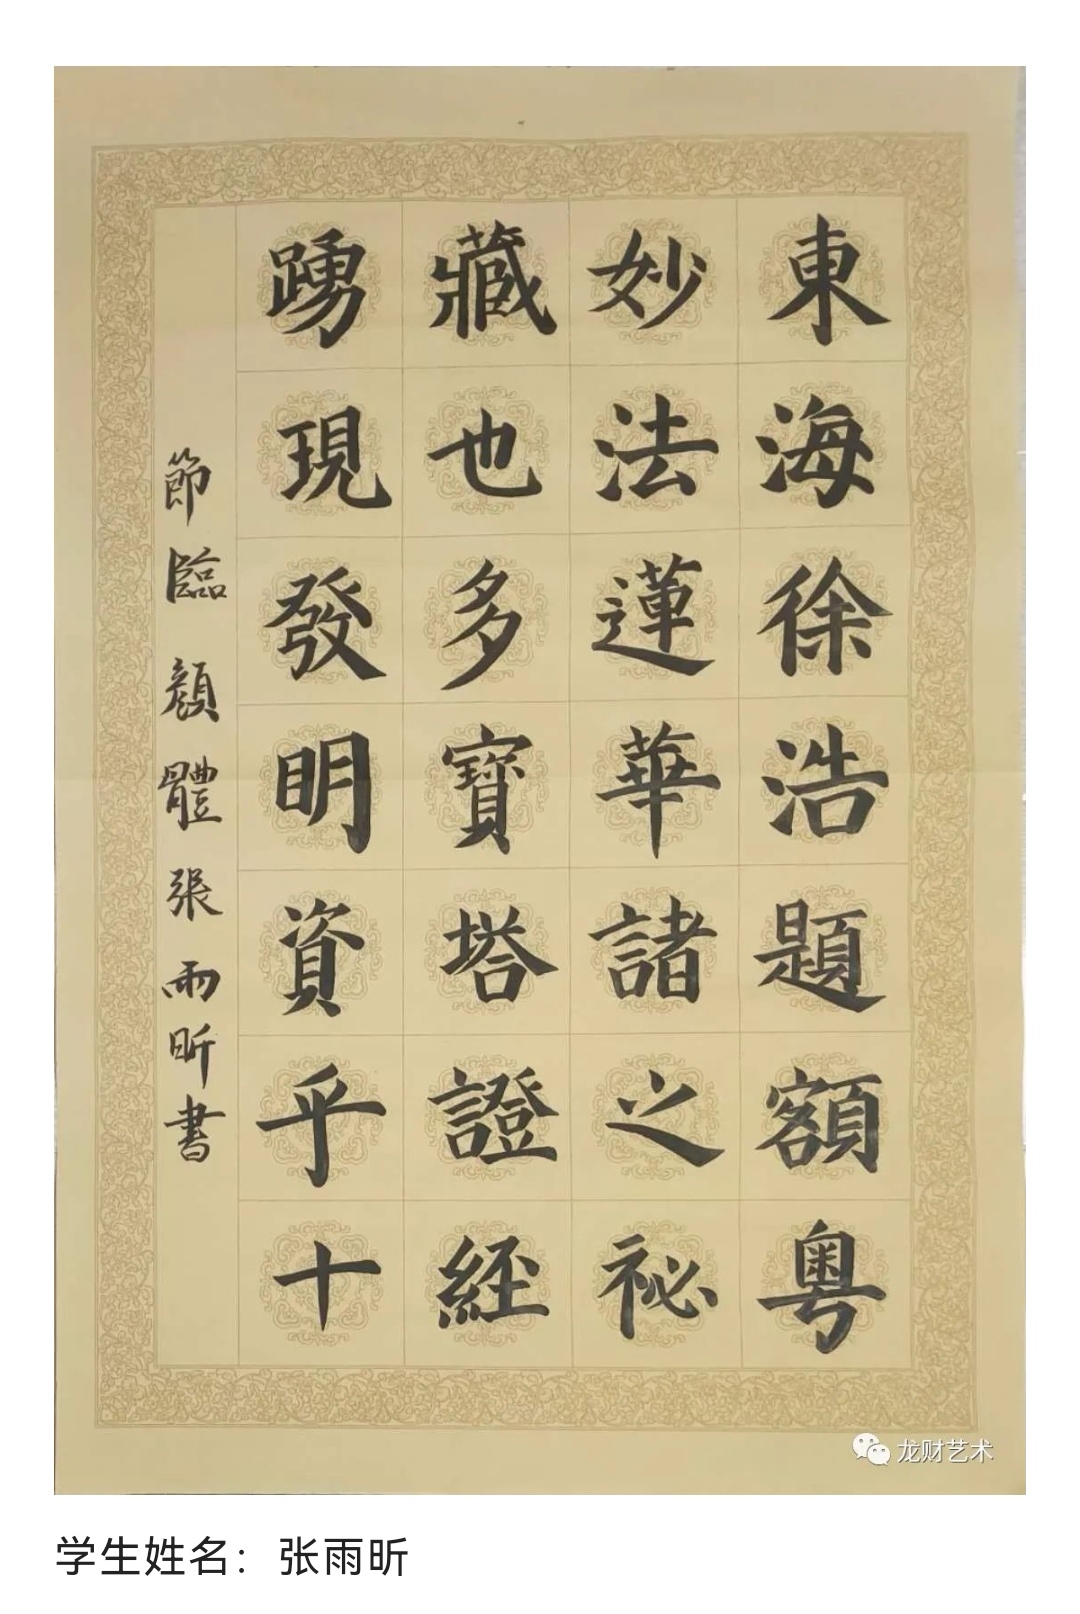 東海徐浩題額粵
妙法蓮華諸之祕
藏也多寶塔證經
踴現發明資乎十
節臨顏體張雨昕書
龙财艺术
学生姓名：张雨昕